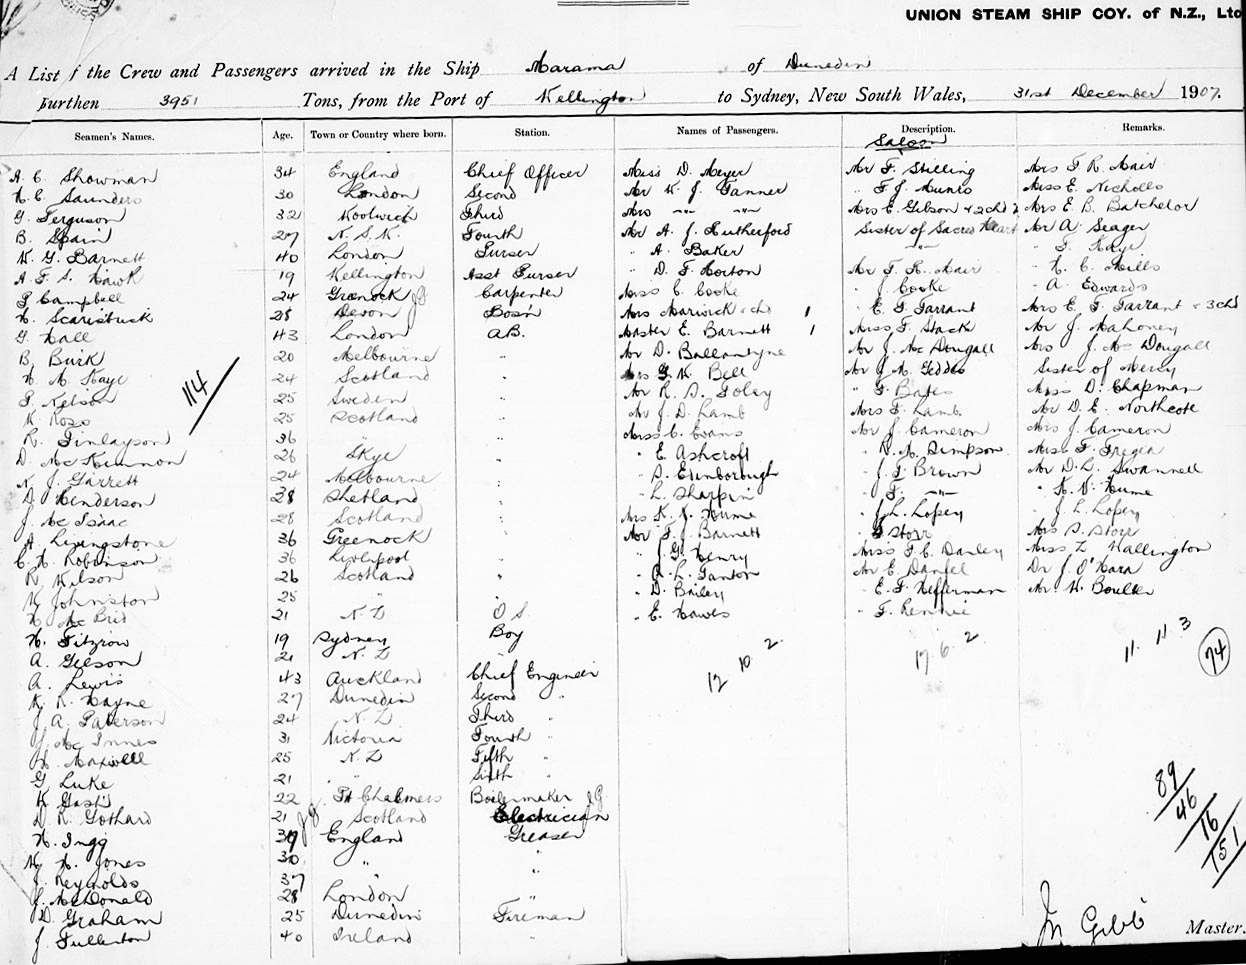 UNION STEAM SHIP COY. of N.Z., Lto
A List f the Crew and Passengers arrived in the Ship Marama of Dunedin
Burthen 3951 Tons, from the Port of Wellington to Sydney, New South Wales, 31st December 1907.
Seamen's Names. Age. Town or Country where born. Station. Names of Passengers. Description. Remarks.
Saloon
A. C. Showman 34 England Chief Officer Miss D. Meyer Mr F. Stilling Mrs F. R. Mair
H. C. Saunders 30 London Second Mr W. J. Tanner " F. J. Munro Miss E. Nicholls
G. Ferguson 32 Woolwich Third Mrs " " Mrs E. Gibson & 2 chd Mrs E. B. Batchelor
B. Spain 27 N. S. W. Fourth Mr A. J. Rutherford Sister of Sacred Heart Mr A. Seager
W. G. Barnett 40 London Purser " A. Baker " " F. Kaye
A. F. S. Hawk 19 Wellington Asst Purser " D. F. Horton Mr F. R. Mair " H. C. Mills
P. Campbell 24 Greenock Carpenter Miss C. Cooke " J. Cooke " A. Edwards
H. Scarisbrick 28 Devon Bosn Mrs Warwick & chd 1 " E. F. Tarrant Mrs E. F. Tarrant & 3 chd
G. Hall 43 London A.B. Master E. Barnett 1 Miss F. Stack Mr J. Mahoney
B. Burk 20 Melbourne " Mr D. Ballantyne Mr J. Mc Dougall Mrs J. Mc Dougall
H. M. Kaye 24 Scotland " Mrs G. W. Bell Mr J. M. Geddes Sister of Mercy
P. Nelson 25 Sweden " Mr R. D. Foley " F. Bates Miss D. Chapman
114
W. Ross 25 Scotland " Mr J. D. Lamb Mrs F. Lamb Mr D. E. Northcote
R. Finlayson 36 " " Miss C. Evans Mr J. Cameron Mrs J. Cameron
D. Mc Kinnon 26 Skye " " E. Ashcroft " D. M. Simpson Miss F. Fregia
N. J. Garrett 24 Melbourne " " D. Edinborough " J. F. Brown Mr D. L. Swannell
D. Henderson 28 Shetland " " L. Sharpin " F. " " H. V. Hume
J. Mc Isaac 28 Scotland " Mrs K. V. Hume " J. L. Lopey " J. L. Lopey
A. Livingstone 36 Greenock " Mr F. J. Barnett " Storr Mrs D. Storr
C. H. Robinson 36 Liverpool " " J. G. Henry Miss F. C. Danley Miss Z. Wallington
R. Wilson 26 Scotland " " A. L. Ganton Mr E. Daniel Dr J. O'Hara
W. Johnston 25 " " D. Bailey " E. F. Heffernan Mr W. Boulter
H. Mc Brid 21 N. Z O S. " E. Hawes " F. Rennie
H. Fitzroy 19 Sydney Boy
A. Gelson 21 N. Z
12 10 2 17 6 2 11 11 3 74
A. Lewis 43 Auckland Chief Engineer
K. R. Hayne 27 Dunedin Second "
J. A. Paterson 24 N. Z Third "
J. Mc Innes 31 Victoria Fourth "
H. Maxwell 25 N. Z Fifth "
G. Luke 21 " " Sixth "
W. Gash 22 Pt Chalmers Boilermaker
D. R. Gothard 21 Scotland Electrician
H. Ingg 39 England Greaser
W. H. Jones 30 " "
J. Reynolds 37 "
J. McDonald 28 London "
D. Graham 25 Dunedin Fireman
J. Fullerton 40 Ireland "
89
46
16
151
Jn Gibb Master.